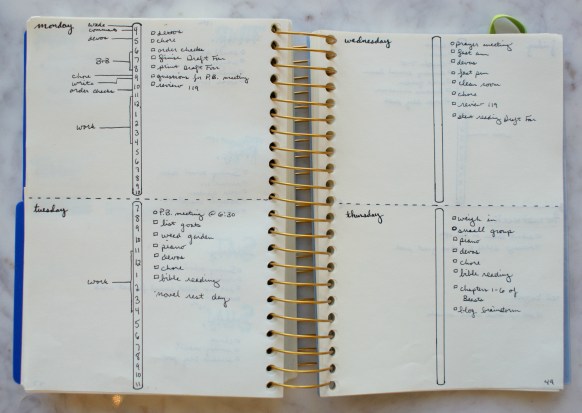 monday
wake
commute
devos
BoB
chore
write
order checks
work
4
5
6
7
8
9
10
11
12
1
2
3
4
5
6
7
8
9
10
devos
chore
order checks
finish Draft For
print Draft For
questions for P.B. meeting
review 119
tuesday
work
7
8
9
10
11
12
1
2
3
4
5
6
7
8
9
10
11
P.B. meeting @ 6:30
list goats
weed garden
piano
devos
chore
bible reading
novel rest day
wednesday
prayer meeting
devos
clean room
chore
review 119
start reading Draft For
thursday
weigh in
small group
piano
devos
chore
bible reading
chapters 1-6 of
Beasts
blog brainstorm
49